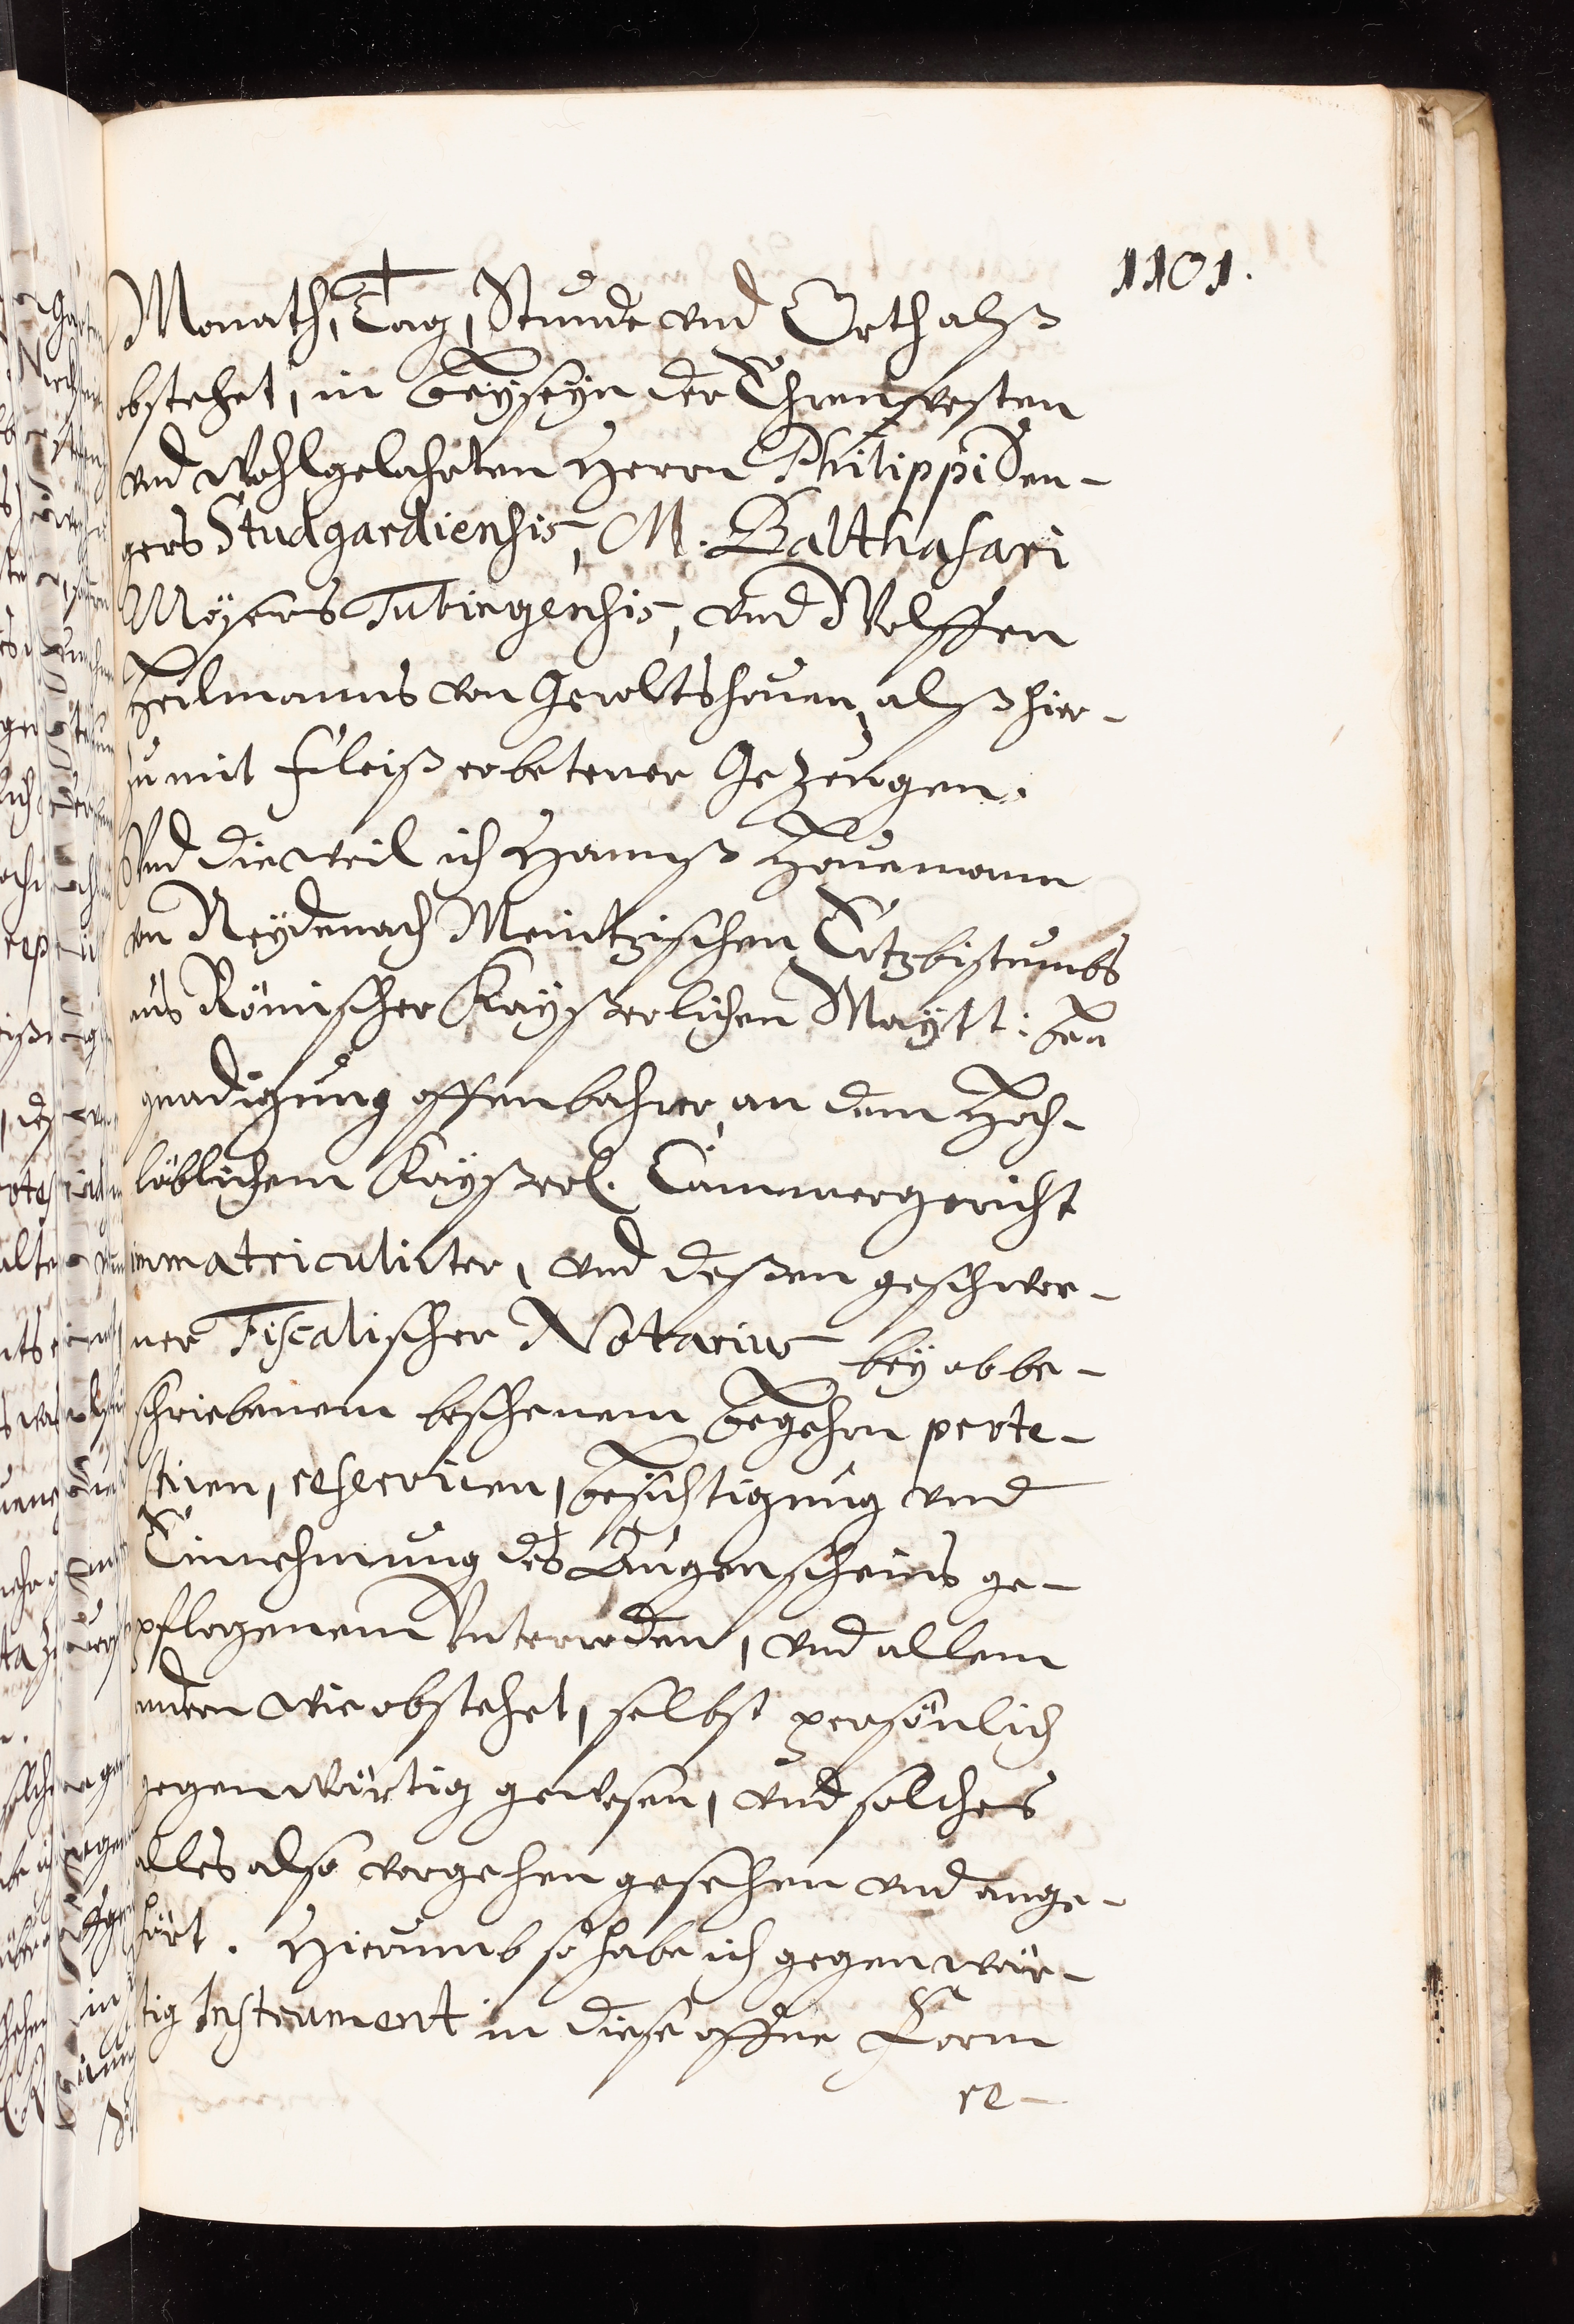 1101.
Monath, Tag, Stunde vnd Orth alß
obstehet, in beyseyn der Ehrnvesten
vnd Wohlgelahrten Herrn Philippi Den-
gers Studgardiensis, M. Balthasari
Möysers Tubingensis, vnd Wolffen
Heilmanns von Geroltshouen, alß hier-
zu mit fleiß erbetener Gezeugen.
Vnd dieweil ich Hannß Hauemann
von Neydenach Meintzischen Ertzbistumbs
aus Römischer Kayßerlichen Maytt: be-
gnadigung offenbahrer, an dem Hoch-
löblichem Kayßerl. Cammergericht
immatriculirter, vnd deßen geschwor-
ner Fiscalischer Notarius bey obbe-
schriebenem beschenem begehrn prote-
stiren, reseruiren, besichtigung vnd
Einnehmung des Augenscheins ge-
pflogenem Vnterreden, vnd allem
andern wie obstehet, selbst persönlich
gegenwärtig gewesen, vnd solches
alles also vorgehen gesehen vnd ange-
hört. Hierumb so habe ich gegenwär-
tig Instrument in diese offne Form
re-